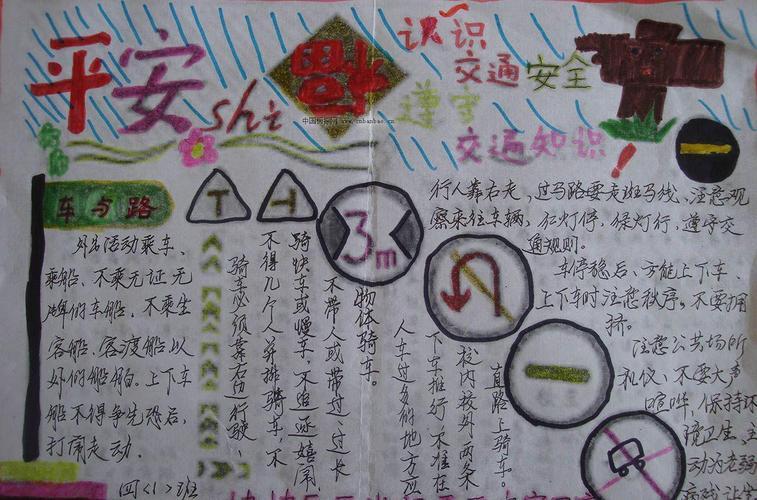 平安 shi 福
认识
交通安全
遵守
交通知识！
中国板报网 www.cnbanbao.cn
车与路
外出活动乘车、
乘船、不乘无证无
牌的车船，不乘坐
客船、客渡船以
外的船舶。上下车
船不得争先恐后，
打闹走动．
四〈1〉班
骑车必须靠右边行驶、
不得几个人并排骑车，不
骑快车或慢车，不追逐嬉闹
不带人或带过、过长
物体骑车。
3m
人车过多的地方应
下车推行，不准在
校内校外两条
直路上骑车。
行人靠右走，过马路要走斑马线、注意观
察来往车辆，红灯停，绿灯行，遵守交
通规则。
车停稳后、方能上下车
上下车时注意秩序。不要拥
挤。
注意公共场所
礼仪、不要大声
喧哗，保持环
境卫生、主
动为老弱